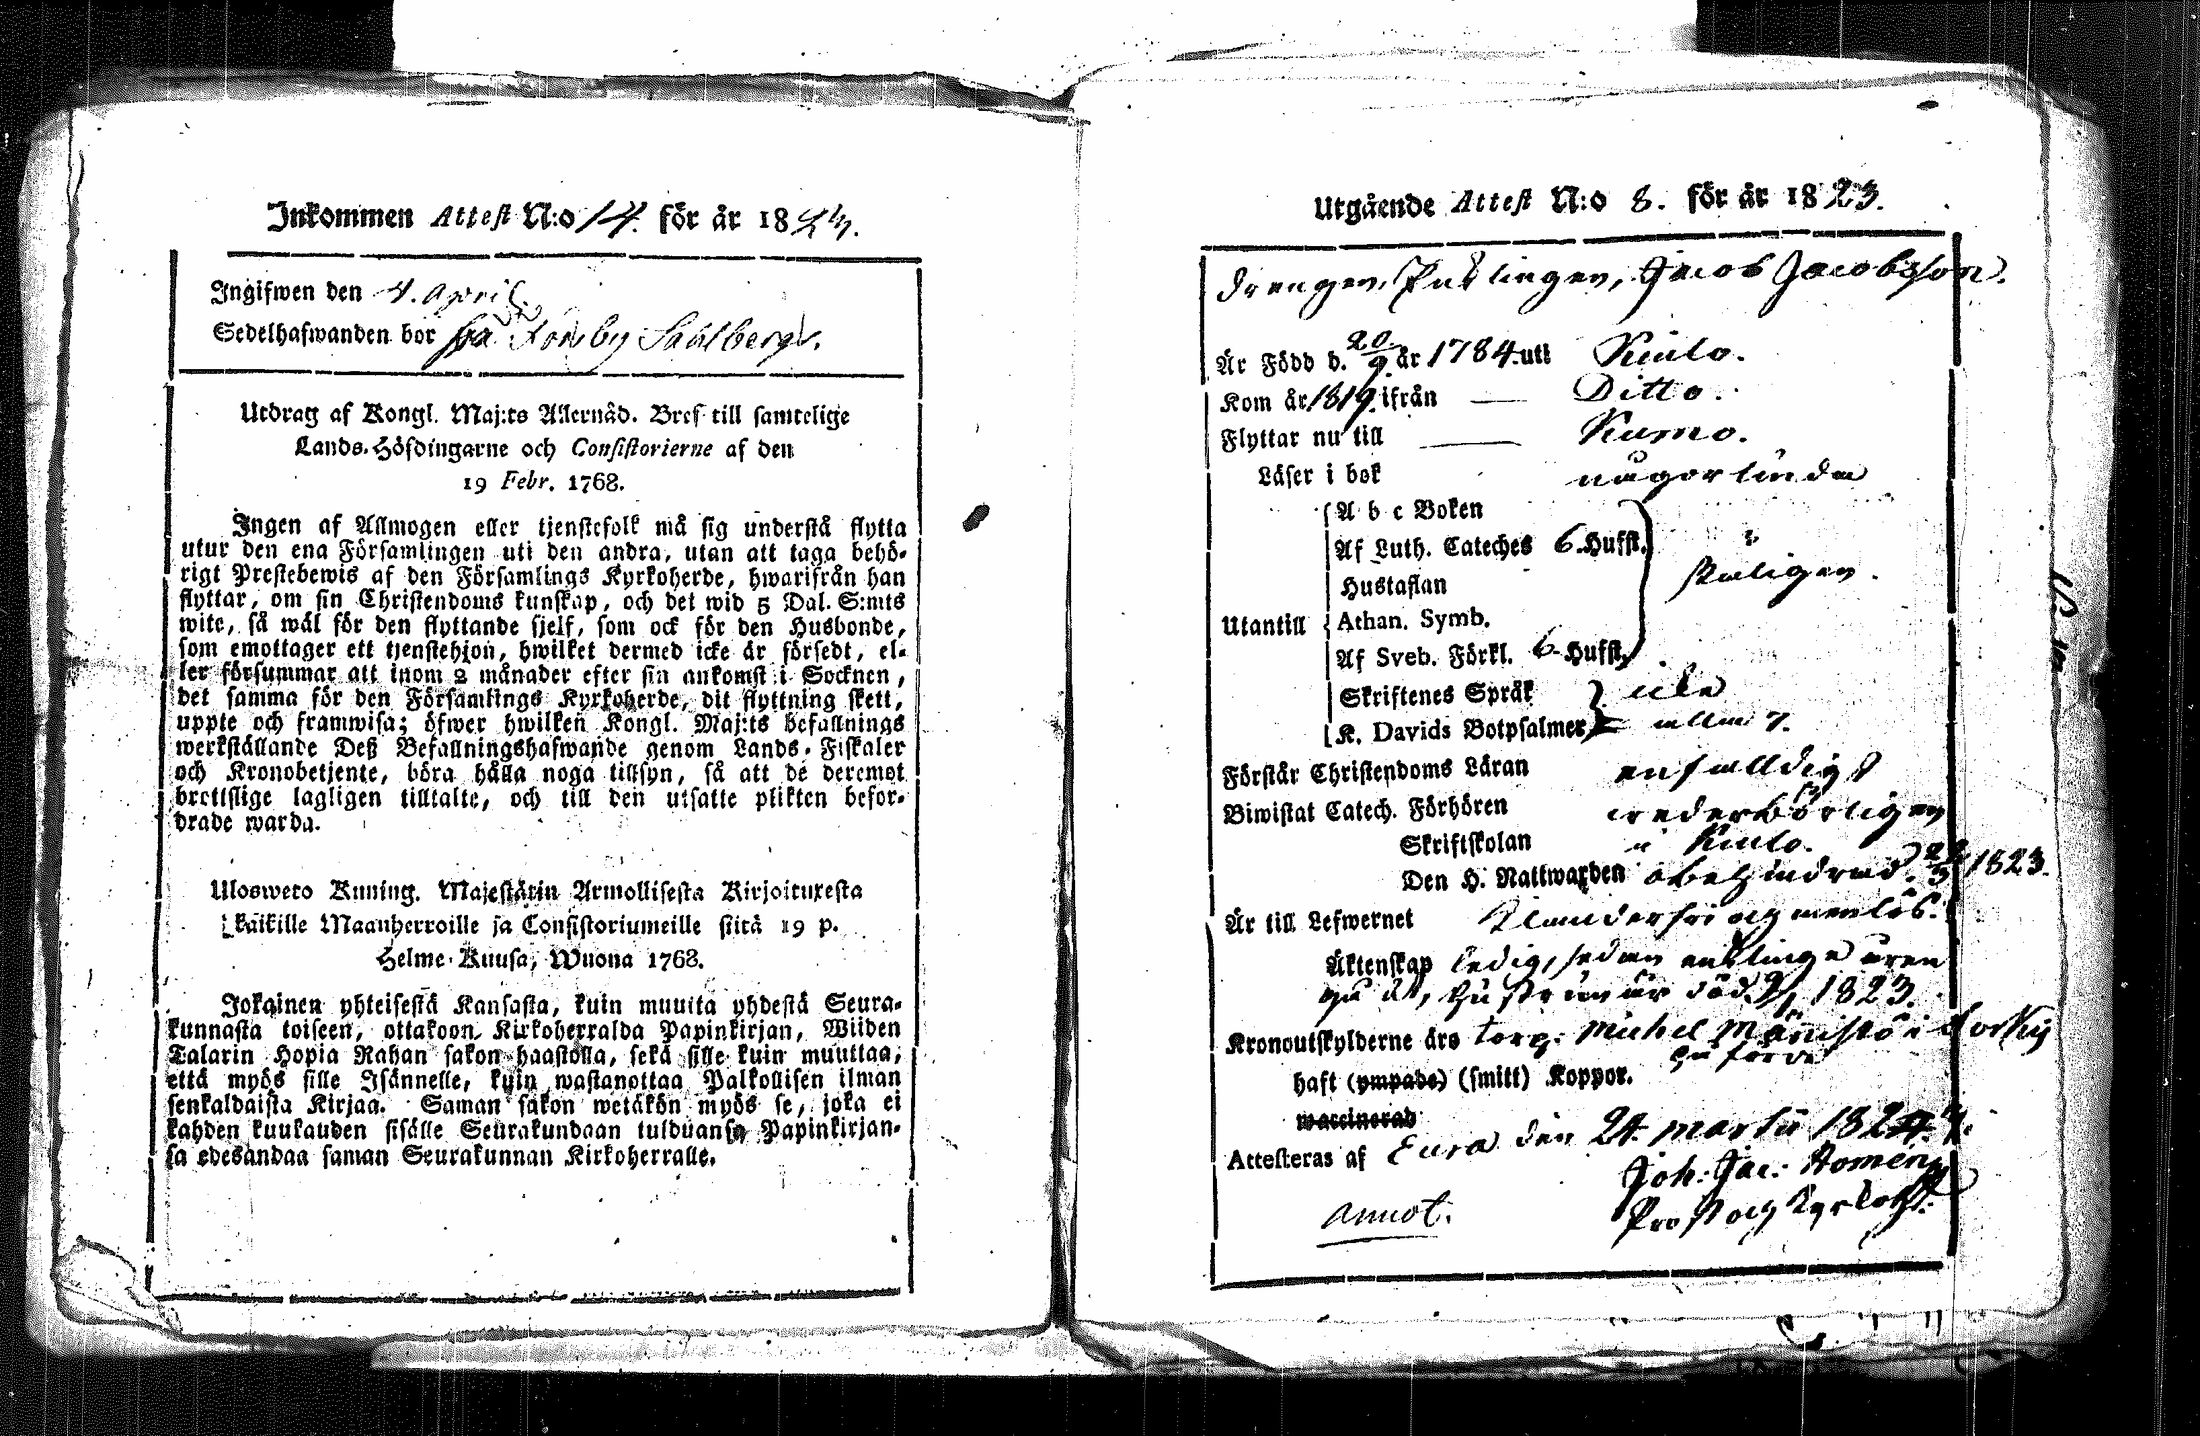 Inkommen Attest N:o 14. för år 18
Ingifwen den 4. April.
Sedelhafwanden bor på Sahlbergs.
Utdrag af Kongl. Maj:ts Allernåd. Bref till samtelige
Lands-Höfdingarne och Consistorierne af den
19 Febr. 1768.
Ingen af Allmogen eller tjenstefolk må sig understå flytta
utur den ena Församlingen uti den andra, utan att taga behö-
rigt Prestebewis af den Församlings Kyrkoherde, hwarifrån han
flyttar, om sin Christendoms kunskap, och det wid 5 Dal. S:mts
wite, så wäl för den flyttande sjelf, som ock för den Husbonde,
som emottager ett tjenstehjon, hwilket dermed icke är försedt, el-
ler försummar att inom 2 månader efter sin ankomst i Socknen,
det samma för den Församlings Kyrkoherde, dit flyttning skett,
uppte och framwisa; öfwer hwilken Kongl. Maj:ts befallnings
werkställande Deß Befallningshafwande genom Lands-Fiskaler
och Kronobetjente, böra hålla noga tillsyn, så att de deremot
brottslige lagligen tilltalte, och till den utsatte plikten befor-
drade warda.
Ulosweto Kuning. Majestätin Armollisesta Kirjoituxesta
kaikille Maanherroille ja Consistoriumeille siitä 19 p.
Helme-Kuusa, Wuona 1768.
Jokainen yhteisestä Kansasta, kuin muutta yhdestä Seura-
kunnasta toiseen, ottakoon Kirkoherralda Papinkirjan, Wiiden
Talarin Hopia Rahan sakon haastolla, sekä sille kuin muuttaa,
että myös sille Isännelle, kuin wastanottaa Palkollisen ilman
senkaldaista Kirjaa. Saman sakon wetäkön myös se, joka ei
kahden kuukauden sisälle Seurakundaan tulduansa Papinkirjan-
sa edesandaa saman Seurakunnan Kirkoherralle.
Utgående Attest N:o 8. för år 1823.
Drengen, Enklingen, Jacob Jacobsson.
Är Född d. 20/9 år 1784 uti Kiulo.
Kom år 1819 ifrån — Ditto.
Flyttar nu till — Kumo.
Läser i bok någorlunda
A b c Boken
Af Luth. Cateches 6 Hufst.
Hustaflan skäligen.
Utantill Athan. Symb.
Af Sveb. Förkl. 6 Hufst.
Skriftenes Språk icke
K. Davids Botpsalmer alla 7.
Förstår Christendoms Läran enfalldigt
Biwistat Catech. Förhören wederbörligen
Skriftskolan i Kiulo.
Den H. Nattwarden obehindrad. 1823.
Är till Lefwernet klanderfri och menlös.
Äktenskap ledig, sedan enklinge åren
gå ut, hustrun är död 1823.
Kronoutskylderne års torp. Michel Männistö i
haft (ympade) (smitt) Koppor.
waccinerad
Attesteras af Eura den 24 Martii 182
Joh: Jac: Homén
Prost och Kyrkoh.
annot.